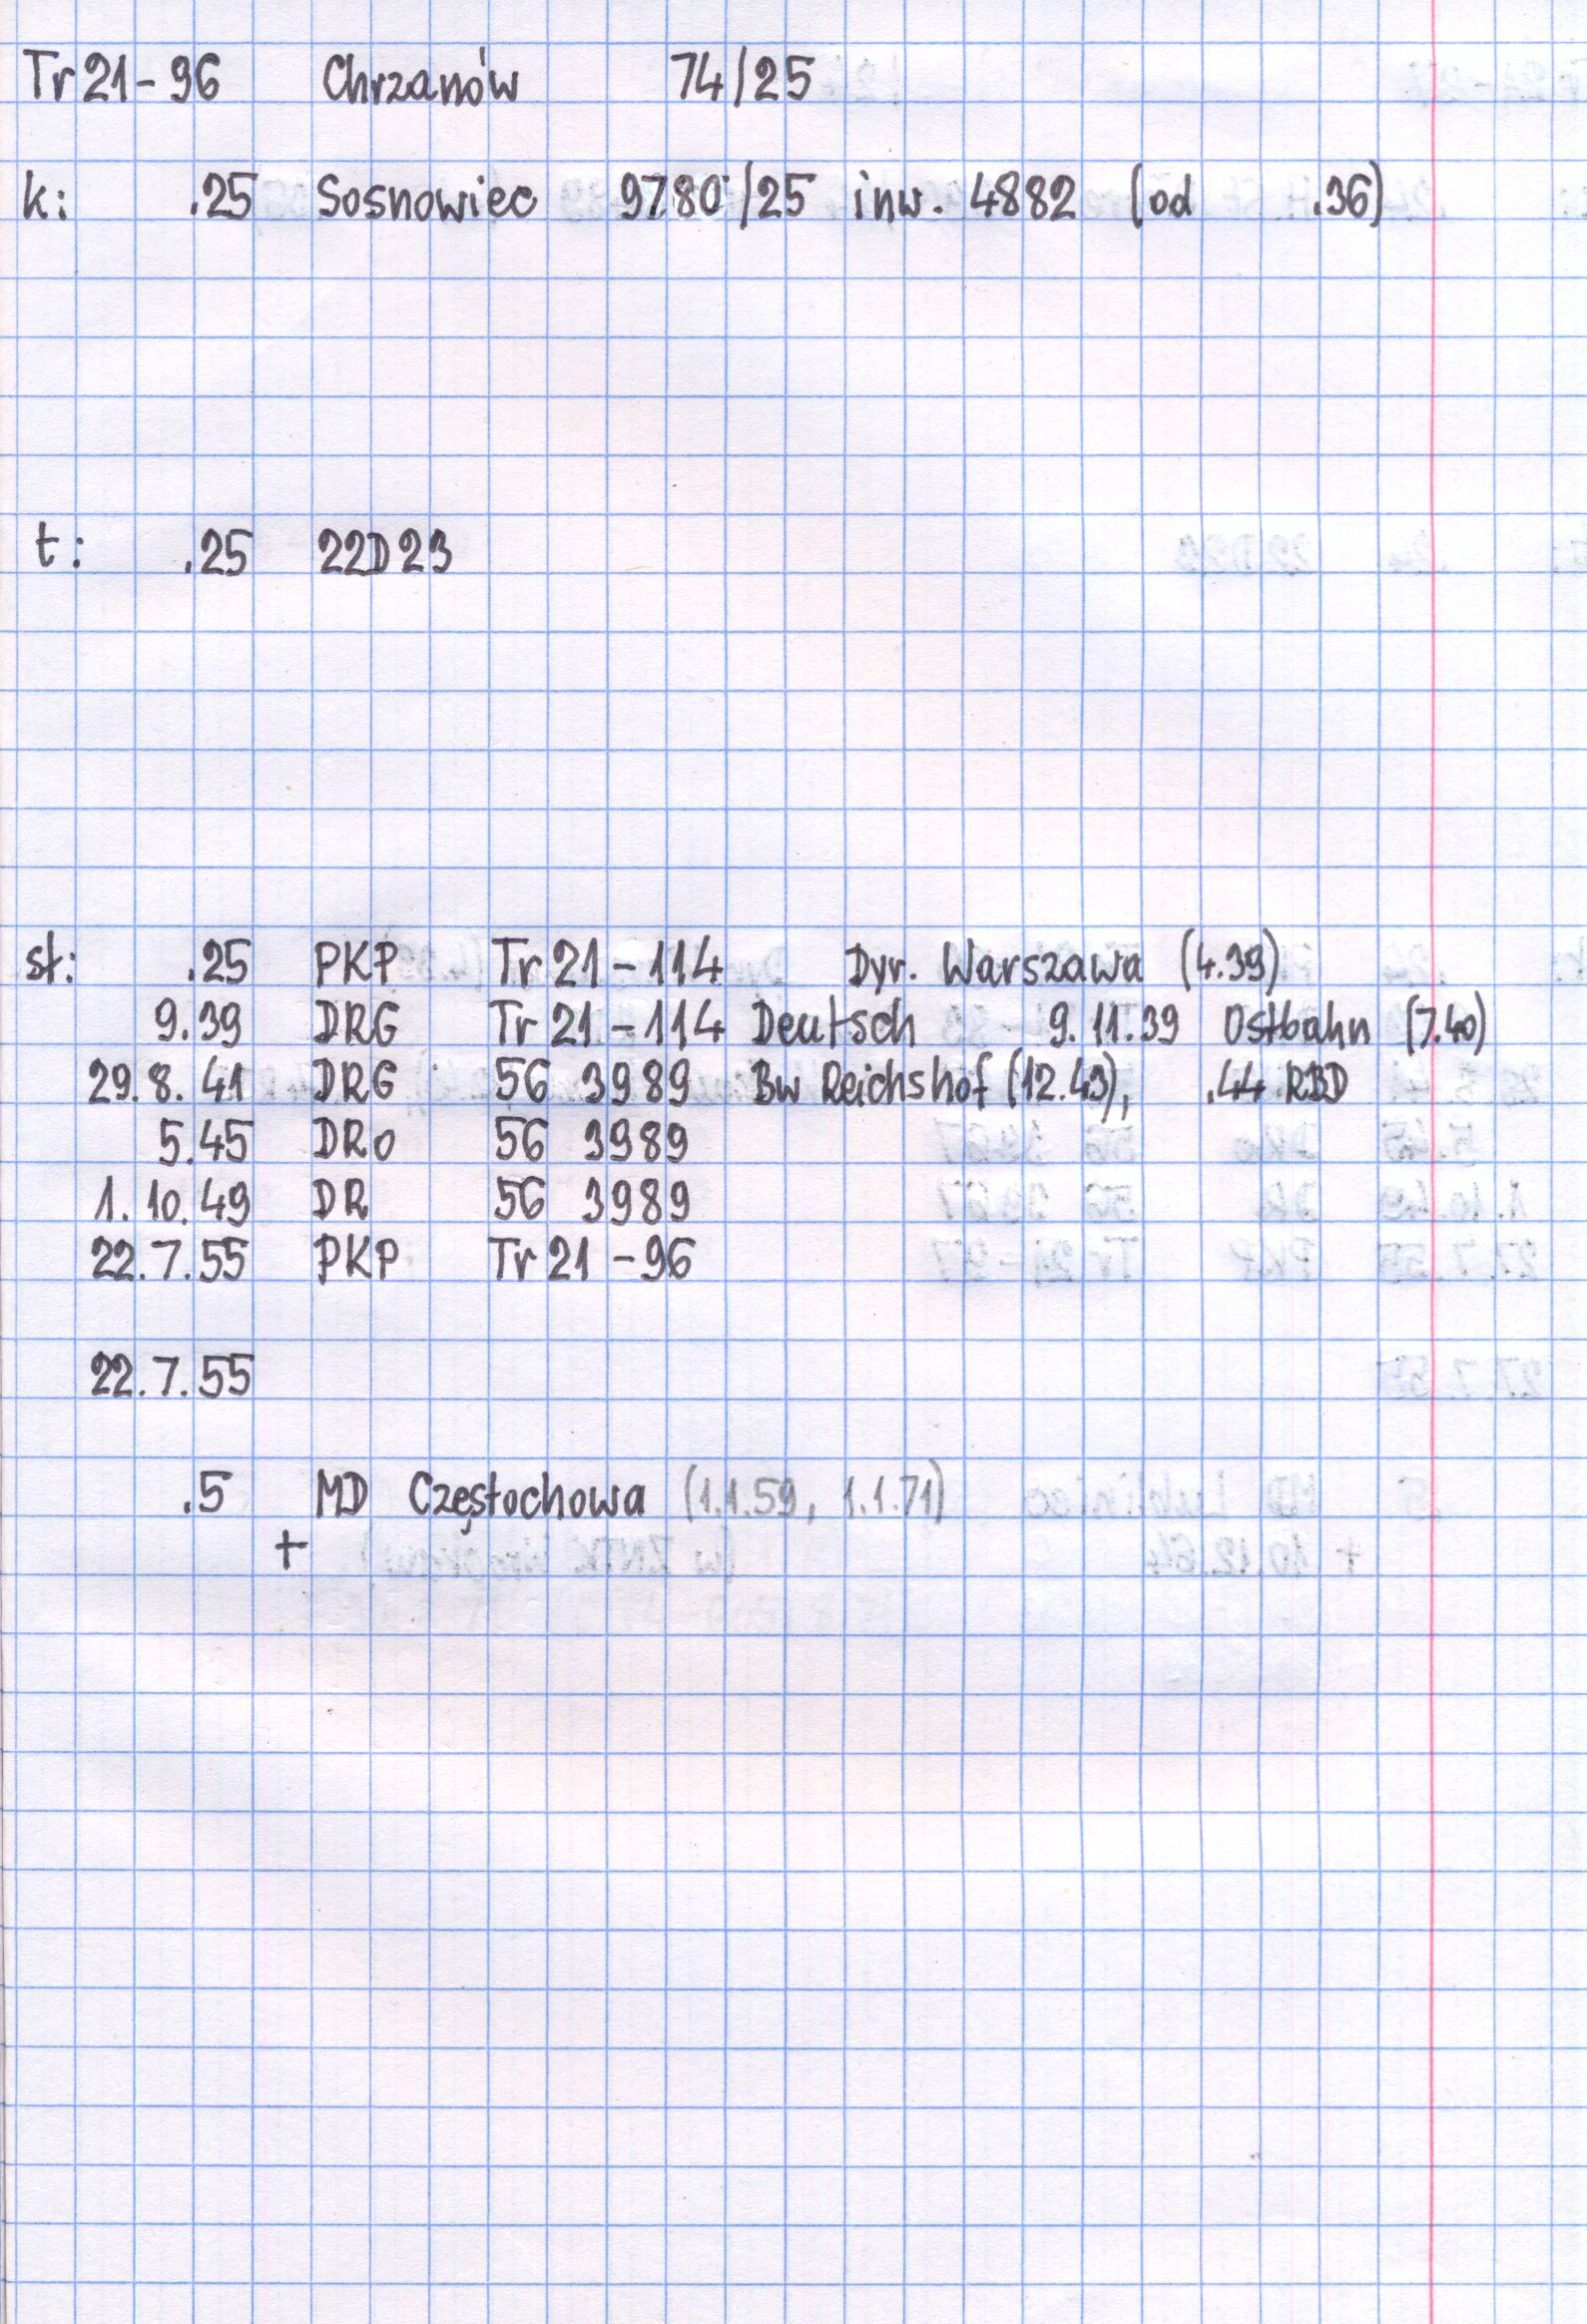 Tr 21 - 96 Chrzanów 74/25
k: .25 Sosnowiec 9780/25 inw. 4882 (od .36)
t: .25 22D23
st: .25 PKP Tr 21 - 114 Dyr. Warszawa (4.39)
9.39 DRG Tr 21 - 114 Deutsch 9.11.39 Ostbahn (7.40)
29.8.41 DRG 56 3989 Bw Reichshof (12.43), .44 RBD
5.45 DRo 56 3989
1.10.49 DR 56 3989
22.7.55 PKP Tr 21 - 96
22.7.55
.5 MD Częstochowa (1.1.59, 1.1.71)
+